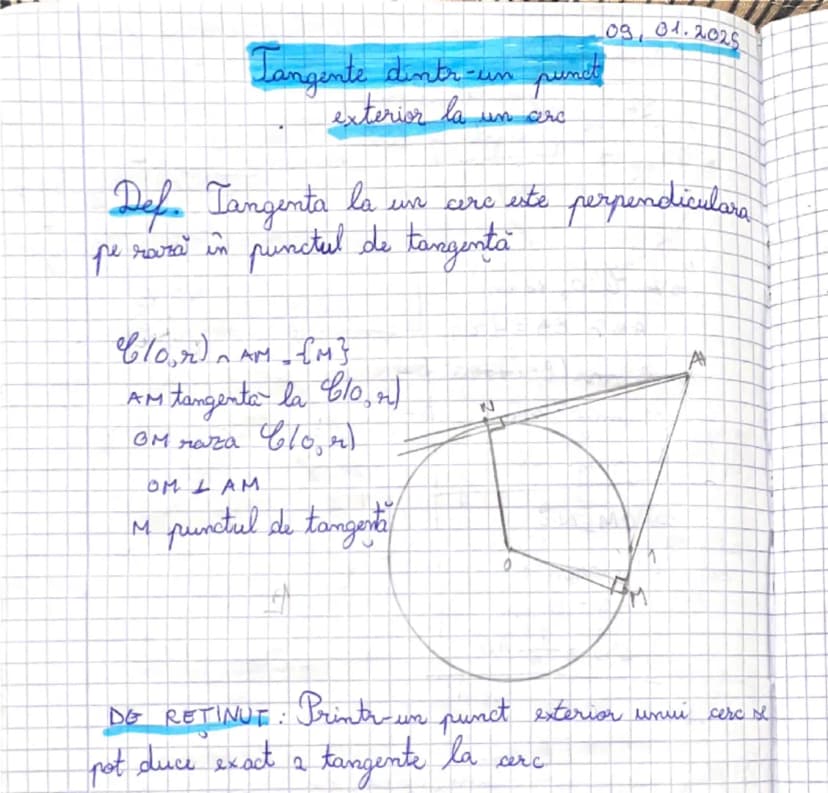 09.01.2025
Tangente dintr-un punct
exterior la un cerc
Def. Tangenta la un cerc este perpendiculara
pe rază în punctul de tangență
C(O,r) ∩ AM = {M}
AM tangentă la C(O,r)
OM raza C(O,r)
OM ⊥ AM
M punctul de tangență
A
N
O
1
M
DE REȚINUT: Printr-un punct exterior unui cerc se
pot duce exact 2 tangente la cerc